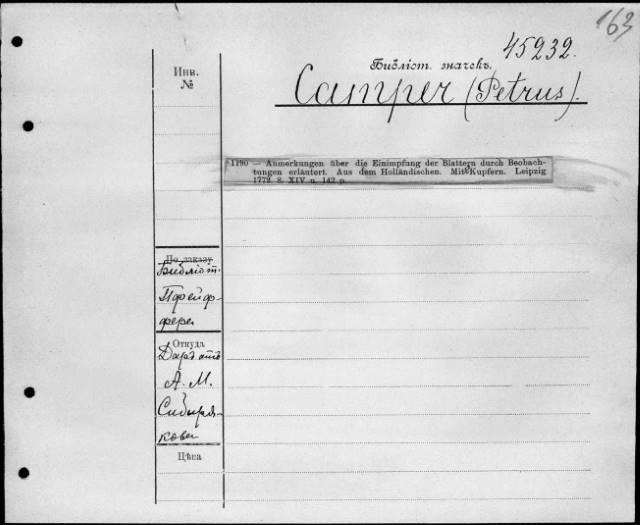 163
45232.
Инв.
№
Библіот. значекъ.
Camper (Petrus).
*1190 — Anmerkungen über die Einimpfung der Blattern durch Beobach-
tungen erläutert. Aus dem Holländischen. Mit Kupfern. Leipzig
1772. 8. XIV u. 142 p.
По заказу
Библіот.
Пфейф-
фера
Откуда
Даръ отъ
А. М.
Сибиря-
кова
Цѣна